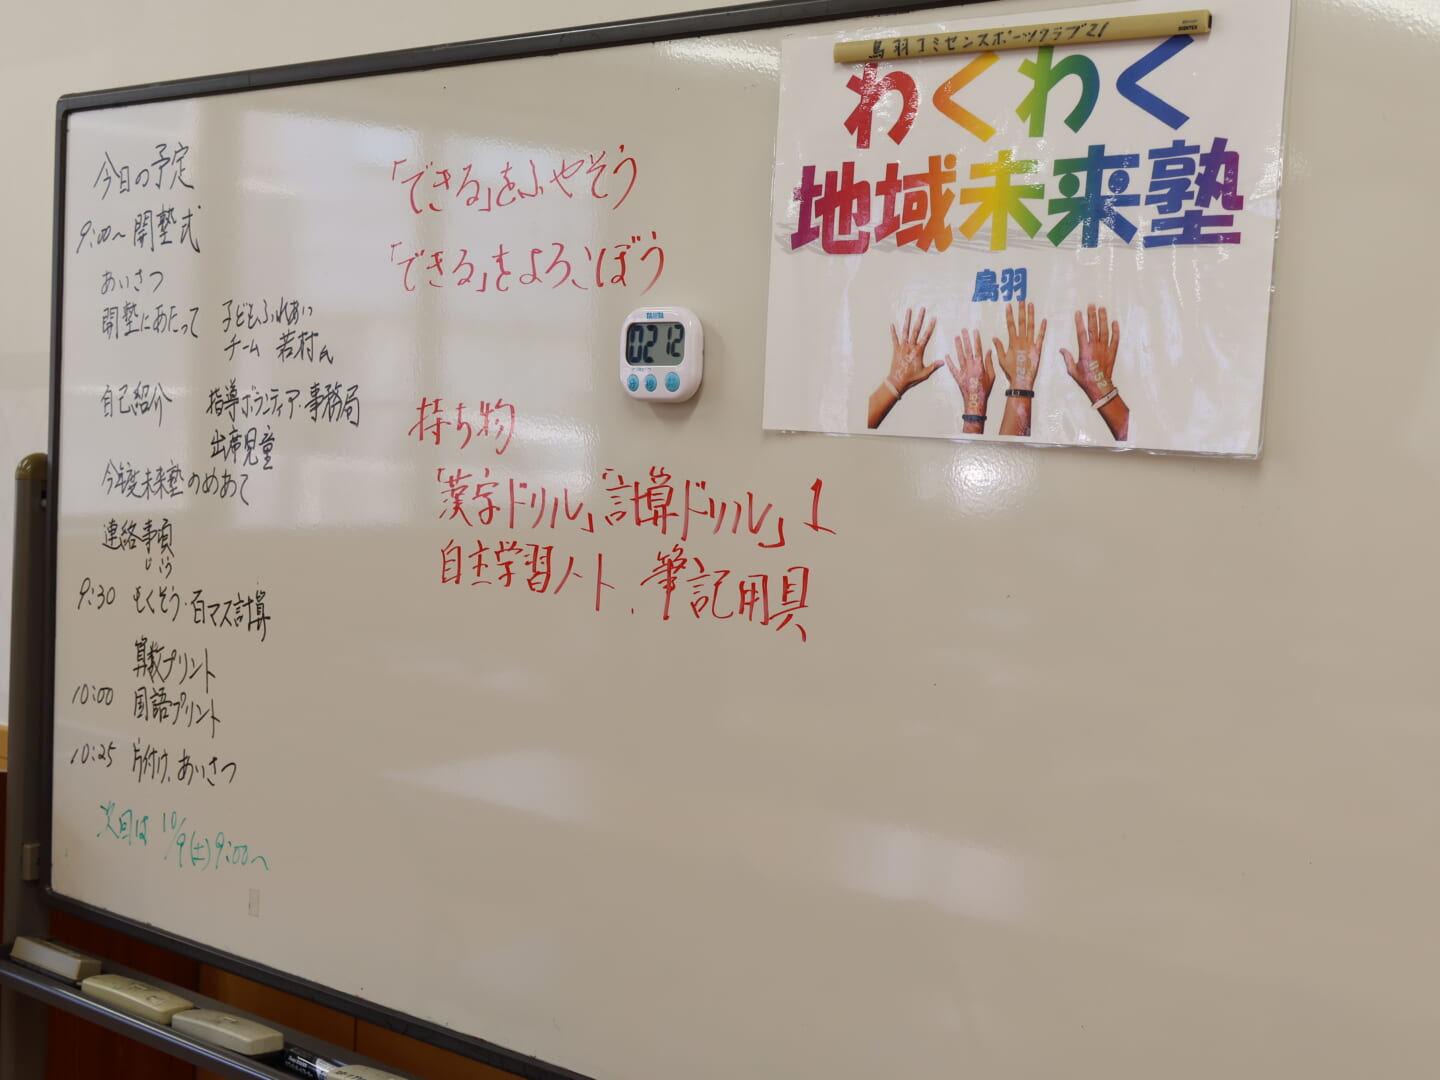 今日の予定
9:00〜開塾式
あいさつ
開塾にあたって 子どもふれあい
チーム 若村氏
自己紹介 指導ボランティア・事務局
出席児童
今年度未来塾のめあて
連絡事項
じこう
9:30 もくそう・百マス計算
算数プリント
10:00 国語プリント
10:25 片付け、あいさつ
次回は 10/9(土)9:00〜
「できる」をふやそう
「できる」をよろこぼう
TANITA
02 12
持ち物
「漢字ドリル」「計算ドリル」1
自主学習ノート、筆記用具
鳥羽コミセンスポーツクラブ21
わくわく
地域未来塾
鳥羽